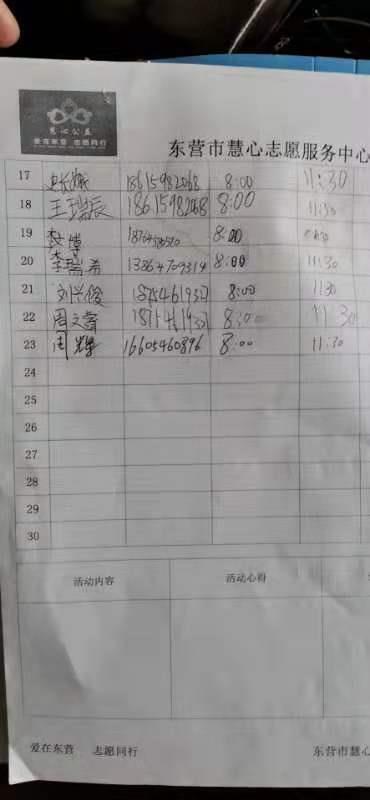 慧心公益
爱在东营 志愿同行
东营市慧心志愿服务中心
17 18615982068 8:00 11:30
18 王瑞辰 18615982068 8:00 11:30
19 8:00
20 李瑞希 13864709314 8:00 11:30
21 刘兴俊 8:00 1130
22 周文 8:30 11:30
23 周 16605460896 8:00 11:30
24
25
26
27
28
29
30
活动内容 活动心得
爱在东营 志愿同行 东营市慧心